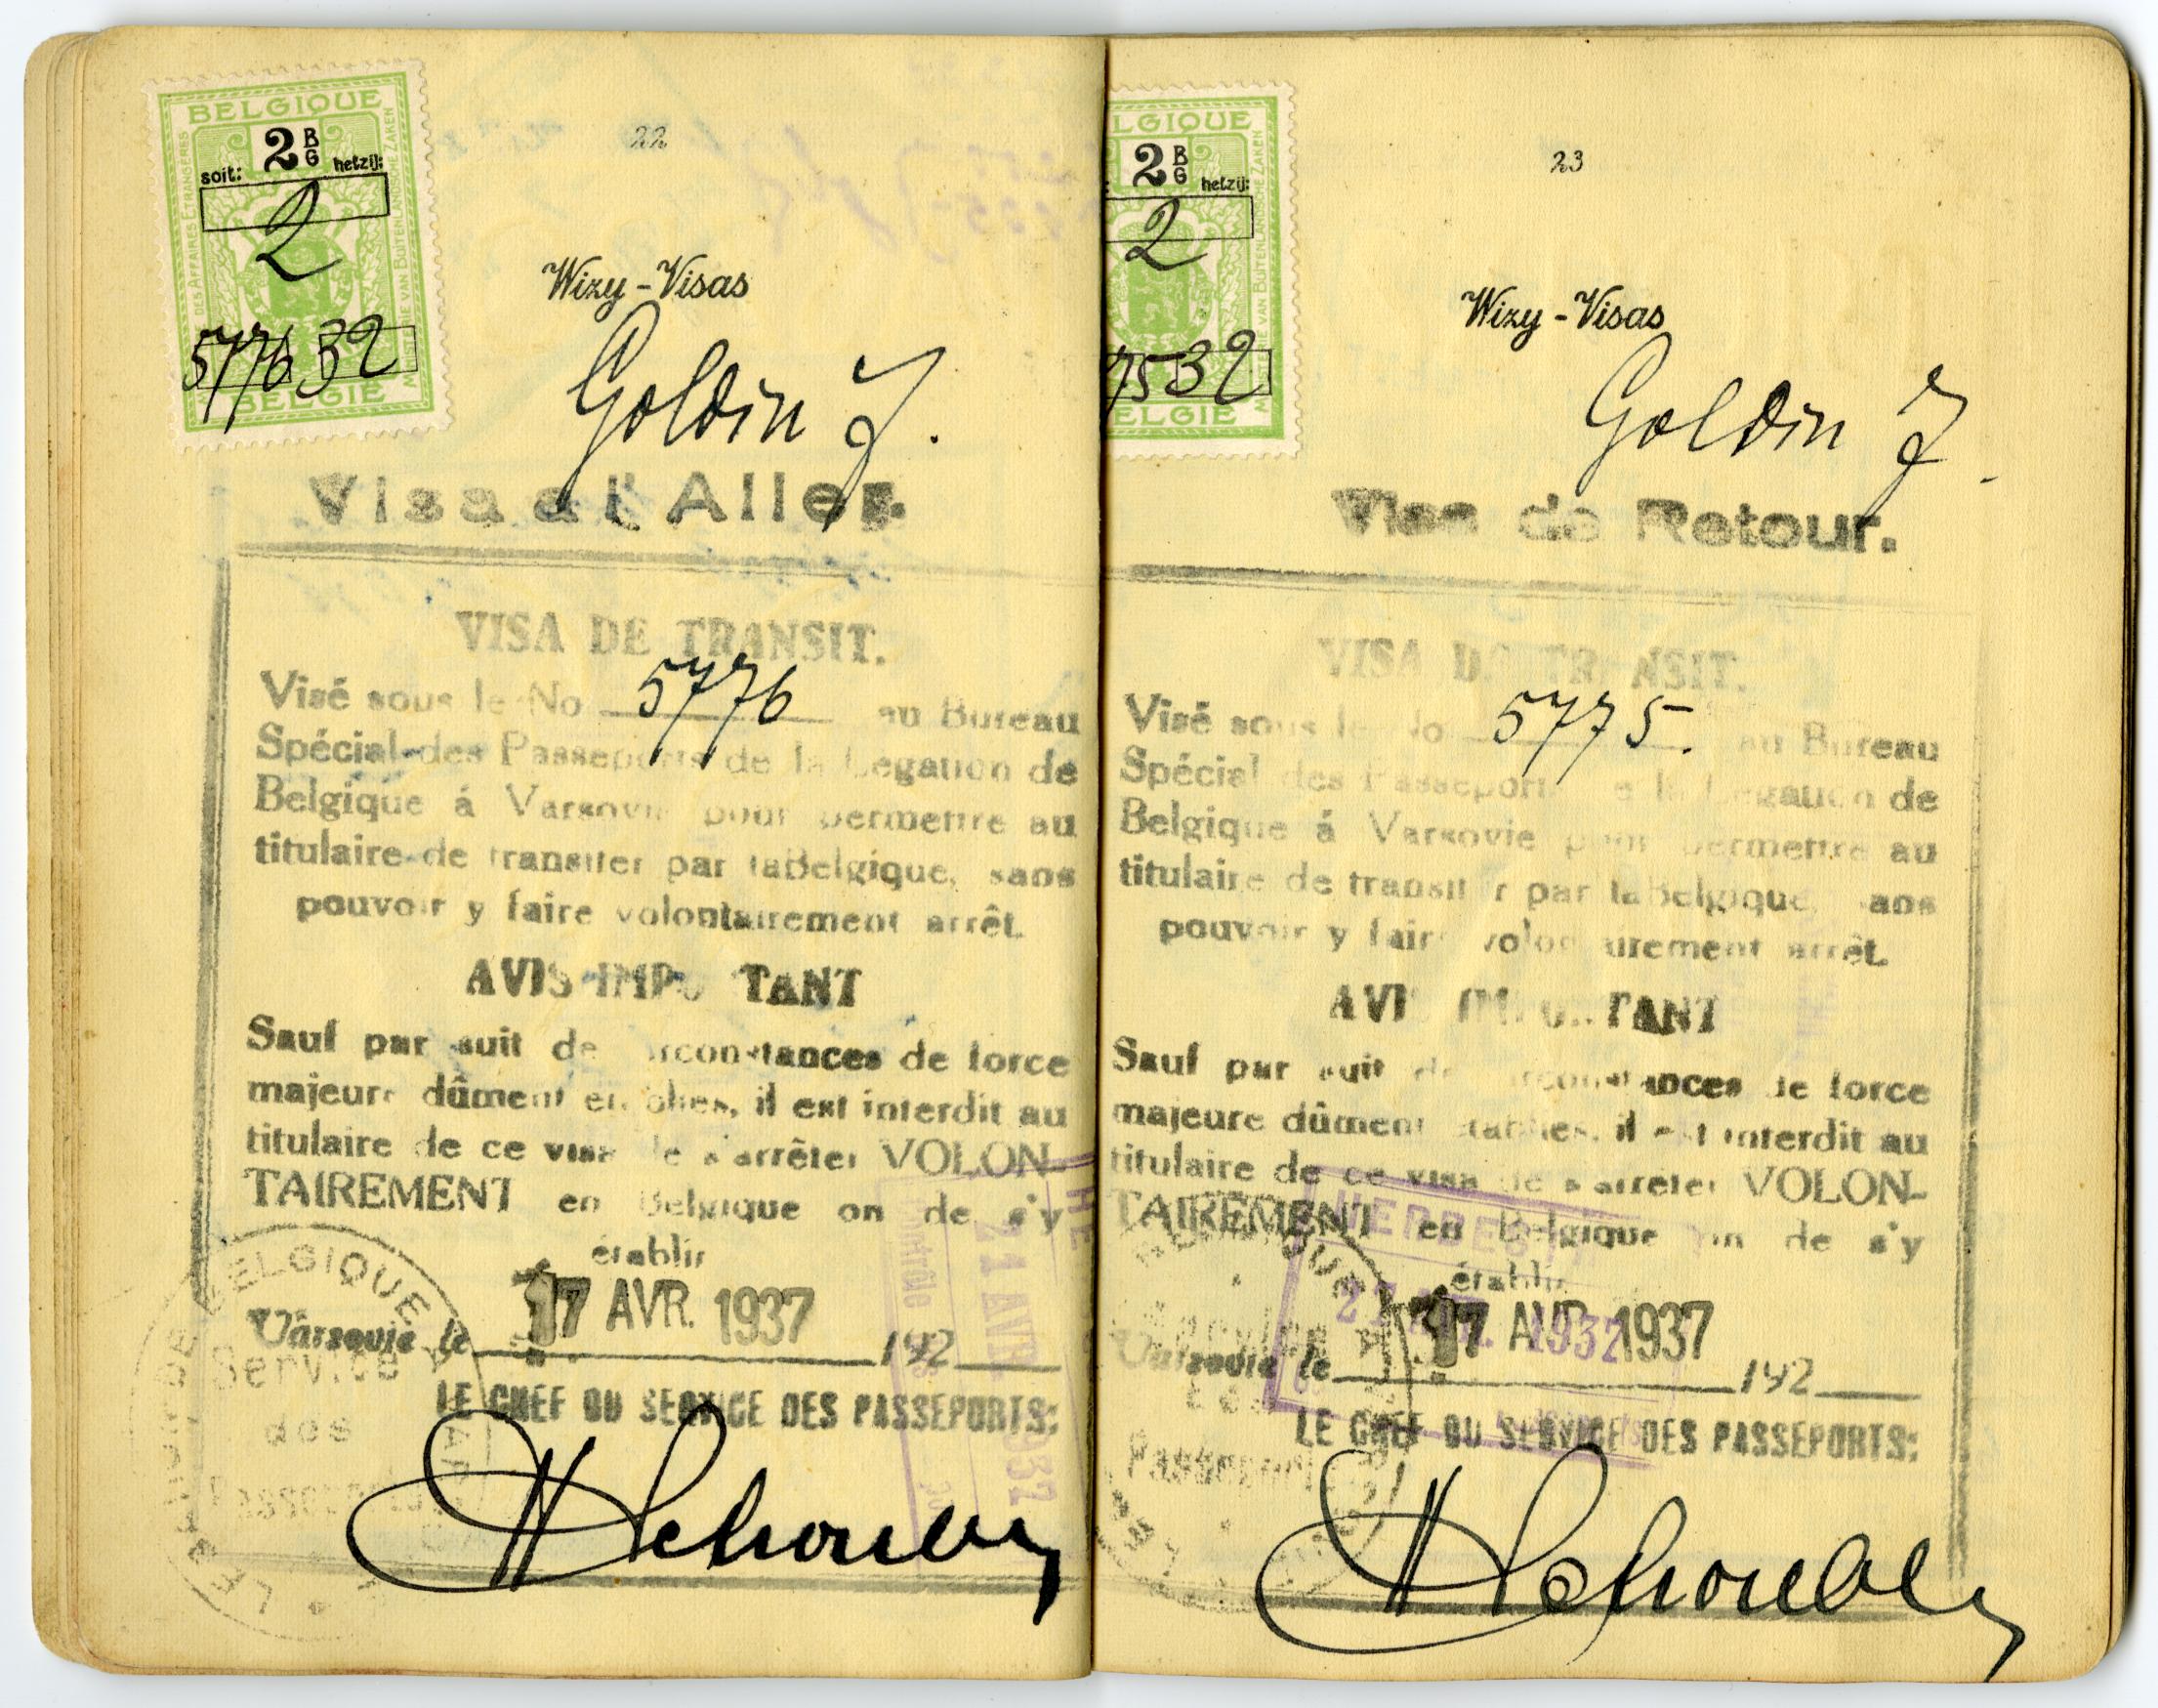 22
BELGIQUE
2 B G
soit: hetzij:
2
577632
BELGIE
DES AFFAIRES ETRANGERES
VAN BUITENLANDSCHE ZAKEN
Wizy-Visas
Goldin J.
Visa a l'Aller.
VISA DE TRANSIT.
Visé sous le No 5776 au Bureau
Spécial des Passeports de la Legation de
Belgique á Varsovie pour permettre au
titulaire de transiter par laBelgique, sans
pouvoir y faire volontairement arrêt.
AVIS IMPO TANT
Sauf par suit de irconstances de force
majeure dûment etablies, il est interdit au
titulaire de ce visa de s'arrêter VOLON-
TAIREMENT en Belgique on de s'y
établir
Varsovie le 17 AVR. 1937 192
LE CHEF DU SERVICE DES PASSEPORTS:
BELGIQUE
Service
des
Passeports
21 AVR 1937
23
LGIQUE
2 B G
hetzij:
2
7532
ELGIE
VAN BUITENLANDSCHE ZAKEN
Wizy-Visas
Goldin J.
Visa de Retour.
VISA DE TRANSIT.
Visé sous le No 5775. au Bureau
Spécial des Passeports de la Legation de
Belgique á Varsovie pour permettre au
titulaire de transiter par laBelgique, sans
pouvoir y faire volontairement arrêt.
AVIS IMPORTANT
Sauf par suit de circonstances de force
majeure dûment etablies, il est interdit au
titulaire de ce visa de s'arrêter VOLON-
TAIREMENT en Belgique on de s'y
établir
Varsovie le 17 AVR. 1937 192
LE CHEF DU SERVICE DES PASSEPORTS:
Passeports